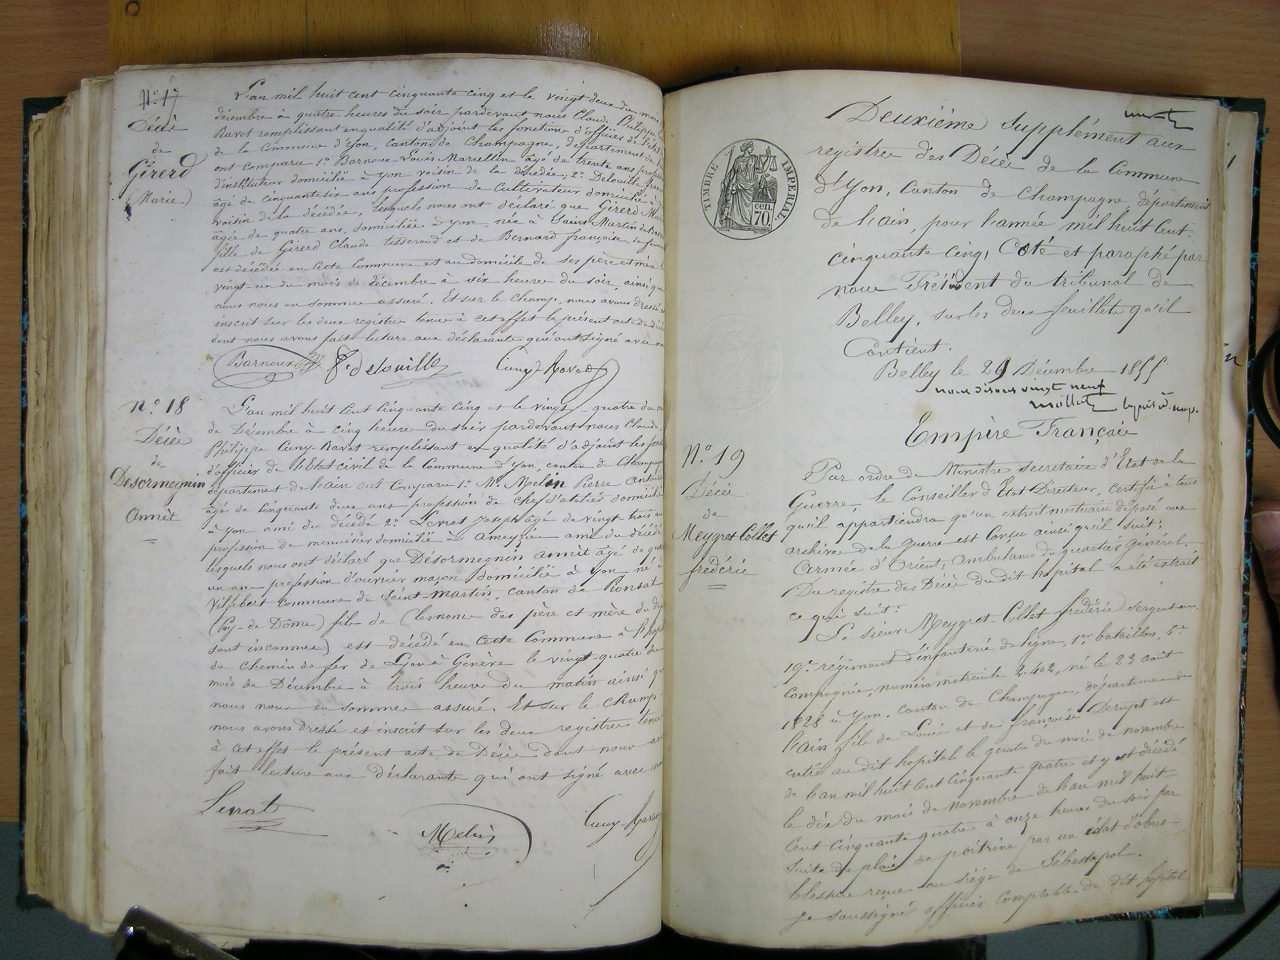 N° 17
Décès
de
Girerd
(Marie)
L'an mil huit cent cinquante cinq et le vingt deux du mois
décembre à quatre heures du soir pardevant nous Claude Philippe
Ravet remplissant en qualité d'adjoint les fonctions d'officier de l'état
de la Commune d'yon, canton de Champagne, département de
ont comparu 1° Barnoux Louis Marcellin âgé de trente ans profession
d'instituteur domicilié à yon voisin de la décédée, 2° Delouille
âgé de cinquante six ans profession de cultivateur domicilié à
voisin de la décédée, lesquels nous ont déclaré que Girerd Marie
âgée de quatre ans, domiciliée à yon née à Saint Martin de
fille de Girerd Claude tisserand et de Bernard françoise sa femme
est décédée en cette Commune et au domicile de ses père et mère
vingt un du mois de décembre à dix heures du soir, ainsi que
nous nous en sommes assuré. Et sur le champ, nous avons dressé
inscrit sur les deux registres tenus à cet effet le présent acte de décès
dont nous avons fait lecture aux déclarants qui ont signé avec
Barnoux Delouille Cuny-Ravet
N° 18
Décès
de
Desormegnin
Annet
L'an mil huit cent cinquante cinq et le vingt-quatre du
de Décembre à cinq heures du soir pardevant nous Claude
Philippe Cuny-Ravet remplissant en qualité d'adjoint les
d'officier de l'état civil de la Commune d'yon, canton de Champagne
département de l'ain ont comparu 1° Mr Melin Pierre Antoine
âgé de cinquante deux ans profession de chef d'atelier domicilié
à yon ami du décédé 2° Lerrat joseph âgé de vingt trois ans
profession de menuisier domicilié à ameyzieu ami du décédé
lesquels nous ont déclaré que Desormegnin annet âgé de
un ans profession d'ouvrier maçon domicilié à yon né à
Villebert commune de Saint-Martin, canton de Pionsat
(Puy-de-Dôme) fils de (les noms des père et mère du
sont inconnus) est décédé en cette Commune à
du chemin de fer de Lyon à Genève le vingt quatre du
mois de Décembre à trois heures du matin ainsi que
nous nous en sommes assuré. Et sur le champ
nous avons dressé et inscrit sur les deux registres tenus
à cet effet le présent acte de Décès dont nous avons
fait lecture aux déclarants qui ont signé avec nous
Lerrat
Melin
Cuny-Ravet
TIMBRE IMPERIAL
cen.
70
Deuxième Supplément aux
registres des Décès de la Commune
d'yon, Canton de Champagne, département
de l'ain, pour l'année mil huit cent
cinquante cinq, Coté et paraphé par
nous Président du tribunal de
Belley, sur les deux feuillets qu'il
Contient.
Belley le 29 Décembre 1855
nous disons vingt neuf
Empire Français
N° 19
Décès
de
Meygret-Collet
frédéric
Par ordre du Ministre secrétaire d'Etat de la
Guerre, le Conseiller d'Etat Directeur, certifie à tous
qu'il appartiendra qu'un extrait mortuaire déposé aux
archives de la guerre est Conçu ainsi qu'il suit:
Armée d'Orient, Ambulance du quartier général.
Du registre des Décès du dit hopital a été extrait
ce qui suit:
Le sieur Meygret-Collet frédéric, Sergent au
19e régiment d'infanterie de ligne, 1er bataillon, 5e
Compagnie, numéro matricule 2402, né le 22 août
1828 à yon, canton de Champagne, département de
l'ain fils de Louis et de françoise Serupt est
entré au dit hopital le quatre du mois de novembre
de l'an mil huit cent cinquante quatre et y est décédé
le dix du mois de novembre de l'an mil huit
cent cinquante quatre à onze heures du soir par
suite de plaie de poitrine par un éclat d'obus.
blessure reçue au siège de Sébastopol.
Je soussigné officier comptable du dit hopital